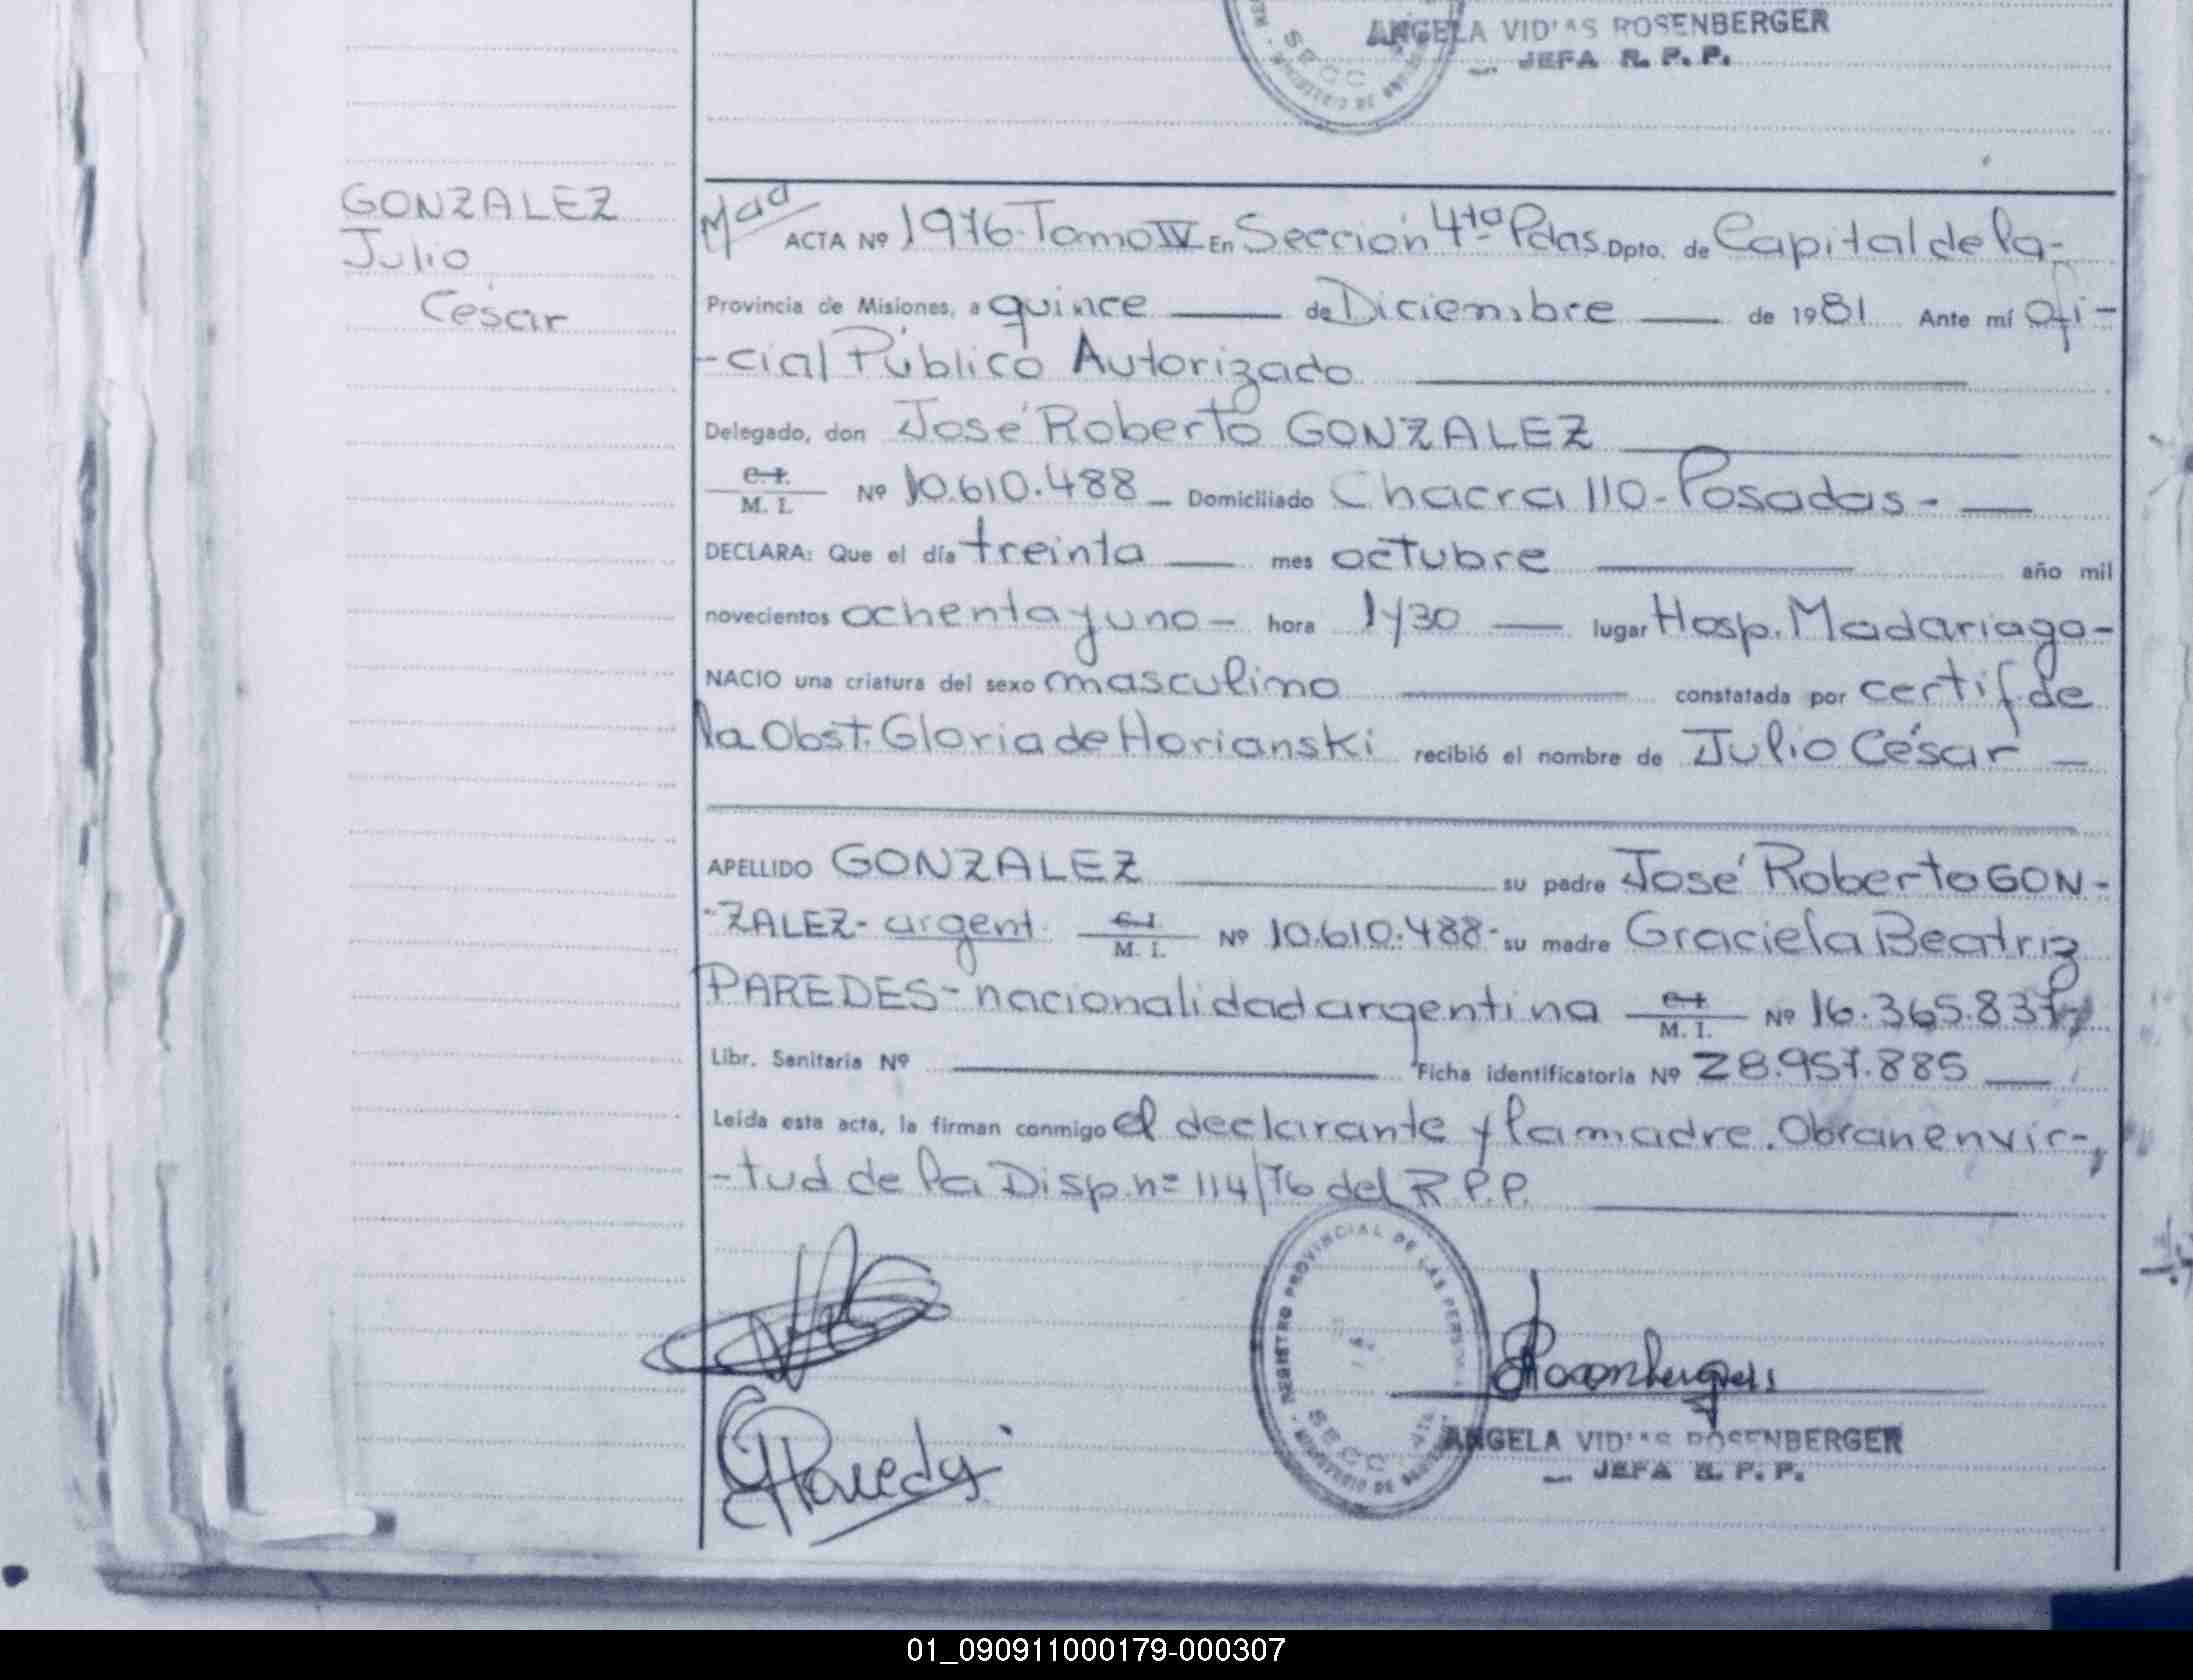 ANGELA VID'AS ROSENBERGER
JEFA R. P. P.
GONZALEZ
Julio
César
Mad
ACTA Nº 1976-Tomo IV En Sección 4ta Pdas. Dpto. de Capital de la-
Provincia de Misiones, a quince — de Diciembre — de 1981 Ante mí Ofi-
-cial Público Autorizado
Delegado, don José Roberto GONZALEZ
C. I.
M. I. Nº 10.610.488 - Domiciliado Chacra 110 - Posadas -
DECLARA: Que el día treinta — mes octubre — año mil
novecientos ochenta y uno - hora 1y30 — lugar Hosp. Madariaga-
NACIO una criatura del sexo masculino — constatada por certif. de
la Obst. Gloria de Horianski recibió el nombre de Julio César -
APELLIDO GONZALEZ — su padre José Roberto GON-
-ZALEZ- argent. C. I.
M. I. Nº 10.610.488- su madre Graciela Beatriz
PAREDES - nacionalidad argentina C. I.
M. I. Nº 16.365.837
Libr. Sanitaria Nº — Ficha identificatoria Nº 28.957.885 —
Leída esta acta, la firman conmigo el declarante y la madre. Obran en vir-
-tud de la Disp. nº 114/76 del R.P.P.
REGISTRO PROVINCIAL DE LAS
SECC
ANGELA VID'AS ROSENBERGER
JEFA R. P. P.
01_090911000179-000307